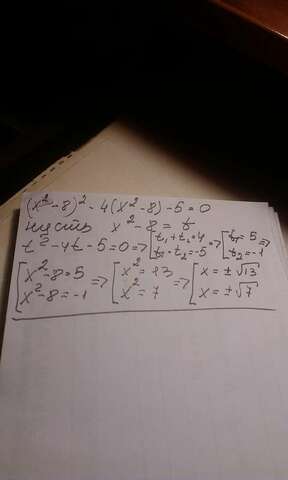 (x² - 8)² - 4(x² - 8) - 5 = 0
пусть x² - 8 = t
t² - 4t - 5 = 0 => [t₁ + t₂ = 4 t₁ · t₂ = -5 => [t₁ = 5 t₂ = -1 =>
[x² - 8 = 5 x² - 8 = -1 => [x² = 13 x² = 7 => [x = ±√13 x = ±√7